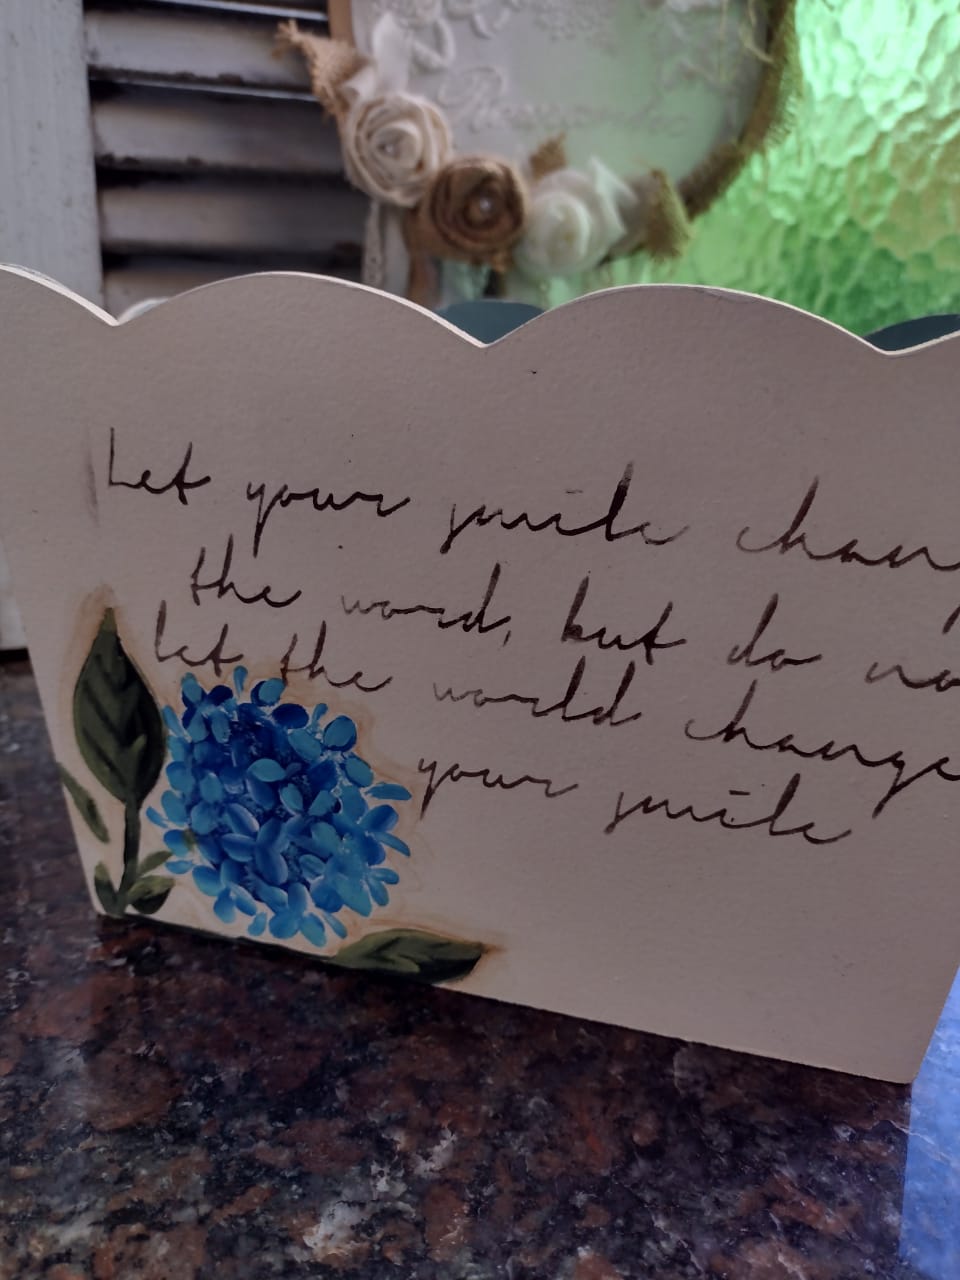 Let your smile chang
the word, but do no
let the world change
your smile